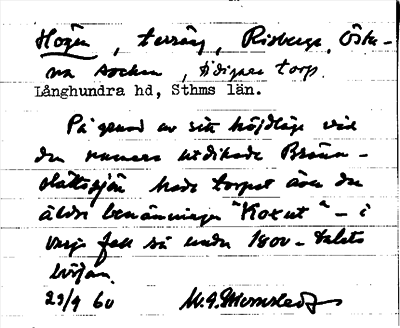 Högen, terräng, Risberga, Östu-
na socken, tidigare torp.
Långhundra hd, Sthms län.
På grund av sitt höjdläge vid
den numera utdikade Bruna-
sjön hade torpet även den
äldre benämningen "Koxut" - i
varje fall så under 1800-talets
början.
29/9 60